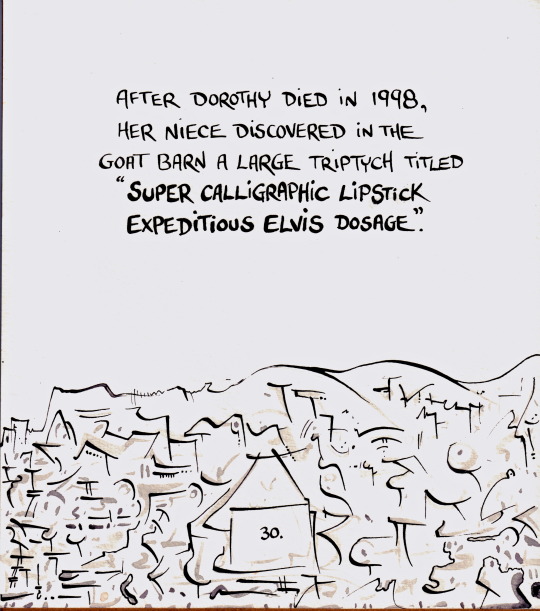 AFTER DOROTHY DiED iN 1998,
HER NiECE DiSCOVERED iN THE
GOAT BARN A LARGE TRiPTYCH TiTLED
“SUPER CALLiGRAPHiC LiPSTiCK
EXPEDiTiOUS ELViS DOSAGE”.
30.